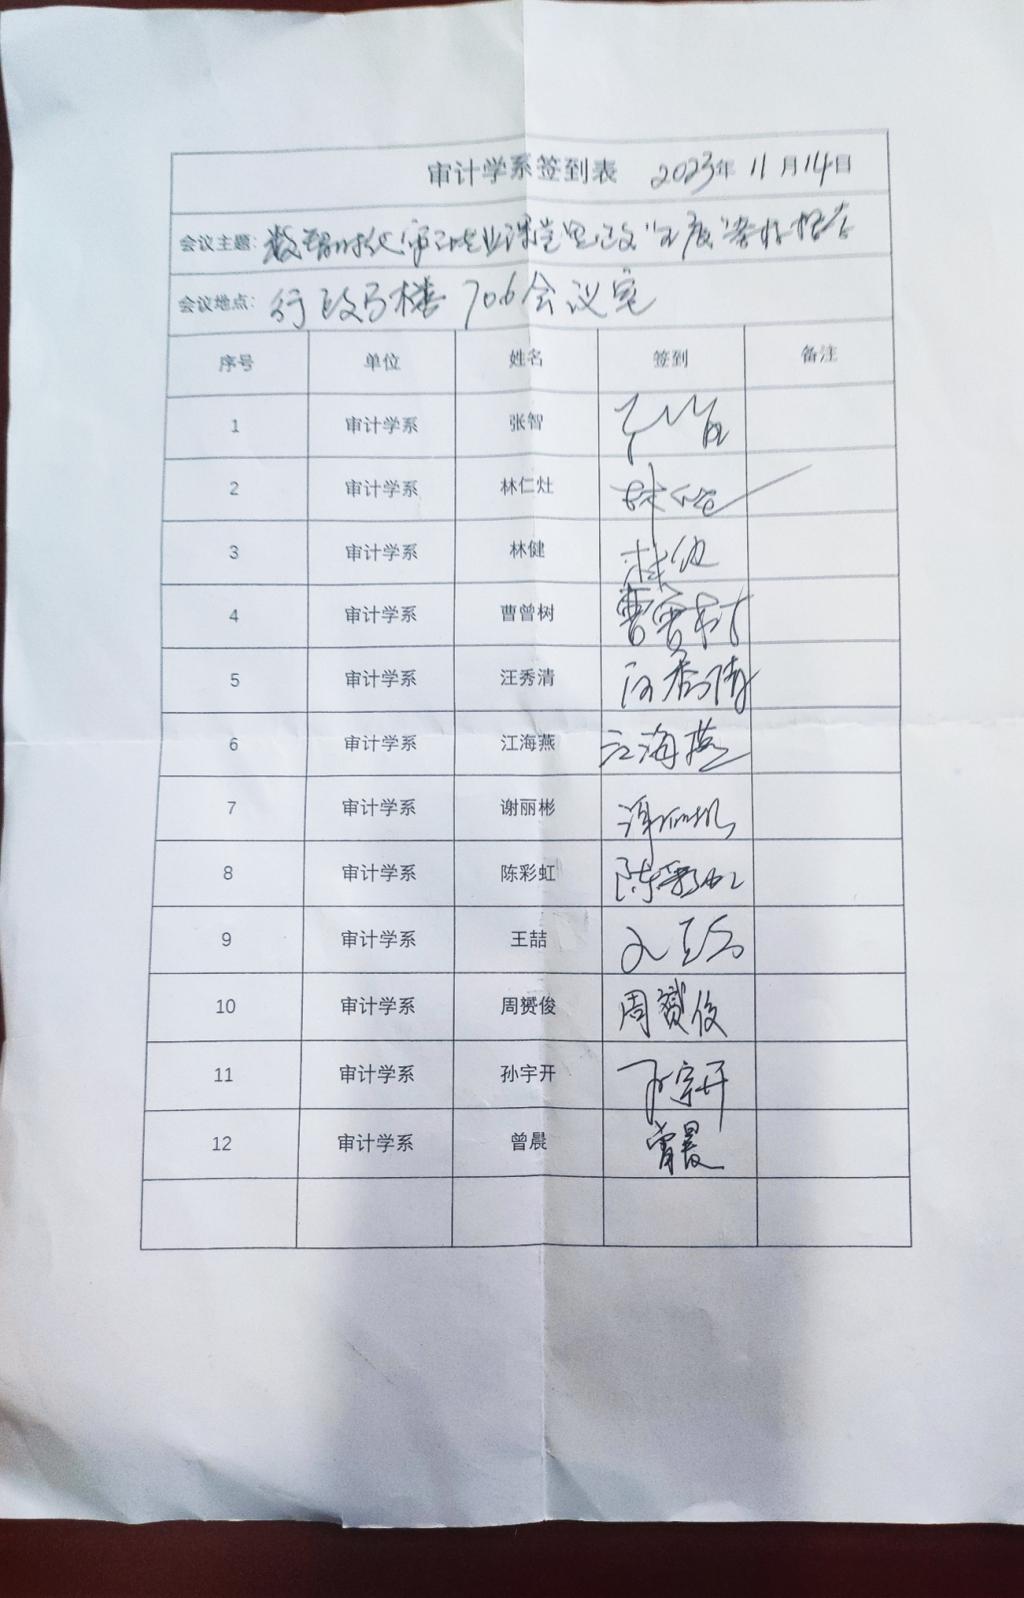 审计学系签到表 2023年 11月14日
会议主题: 数智时代审计专业课堂思政"五度"
会议地点: 行政楼 706会议室
序号 单位 姓名 签到 备注
1 审计学系 张智
2 审计学系 林仁灶
3 审计学系 林健 林健
4 审计学系 曹曾树 曹曾树
5 审计学系 汪秀清 汪秀清
6 审计学系 江海燕 江海燕
7 审计学系 谢丽彬 谢丽彬
8 审计学系 陈彩虹 陈彩虹
9 审计学系 王喆
10 审计学系 周赟俊 周赟俊
11 审计学系 孙宇开 孙宇开
12 审计学系 曾晨 曾晨